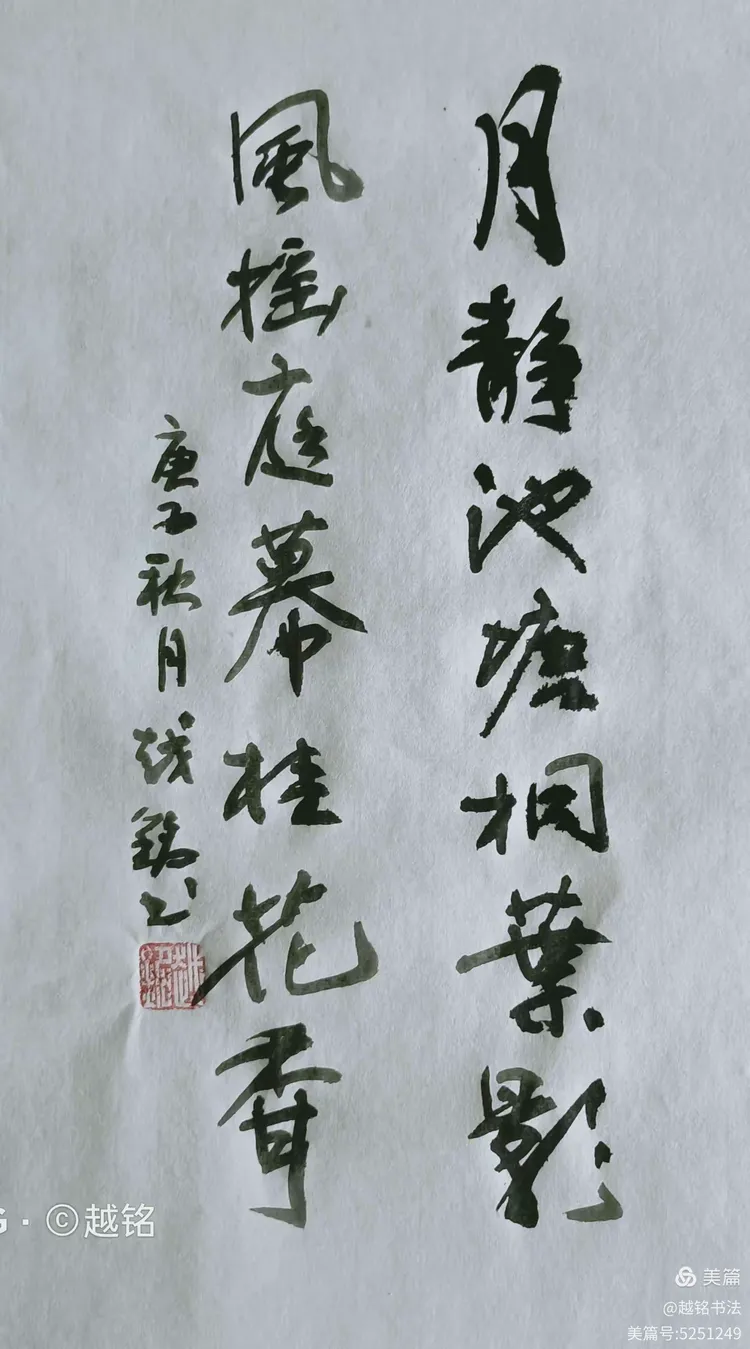 月静池塘桐葉影
風摇庭幕桂花香
庚子秋月越铭书
G·©越铭
美篇
@越铭书法
美篇号:5251249